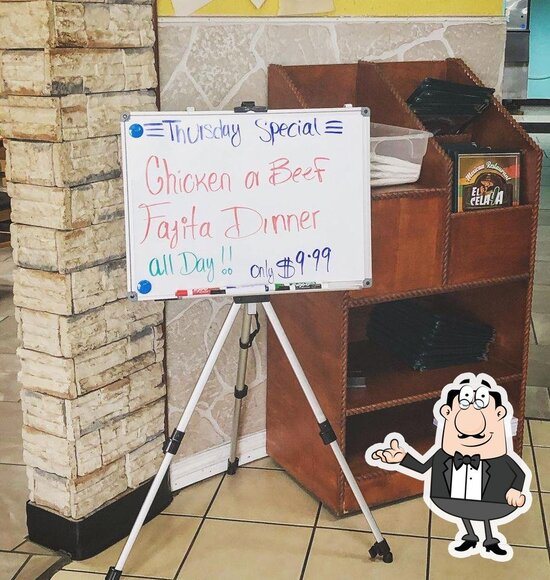 Thursday Special
Chicken or Beef
Fajita Dinner
all Day !!
only $9.99
Mexican Restaurant
EL
CELAYA